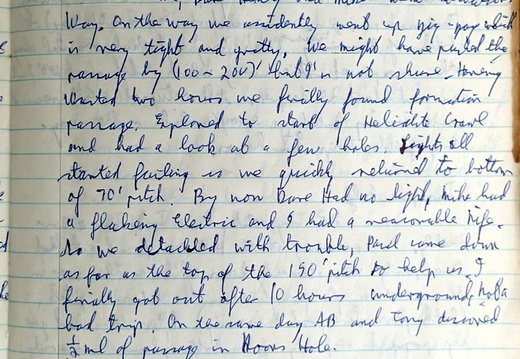 Way. On the way we accidently went up zig-zag which
is very tight and gritty. We might have pushed the
passage by (100 ~ 200)' but I'm not shure. Having
wasted two hours we finally found formation
passage. Explored to start of Helictite Crawl
and had a look at a few holes. Lights all
started failing so we quickly returned to bottom
of 70' pitch. By now Dave Had no light, Mike had
a flakeing Electric and I had a reasonable Nife.
So we detackled with trouble, Paul came down
as far as the top of the 190' pitch to help us. I
finally got out after 10 hours underground, not a
bad trip. On the same day AB and Tony discoverd
½ ml of passage in Hole.